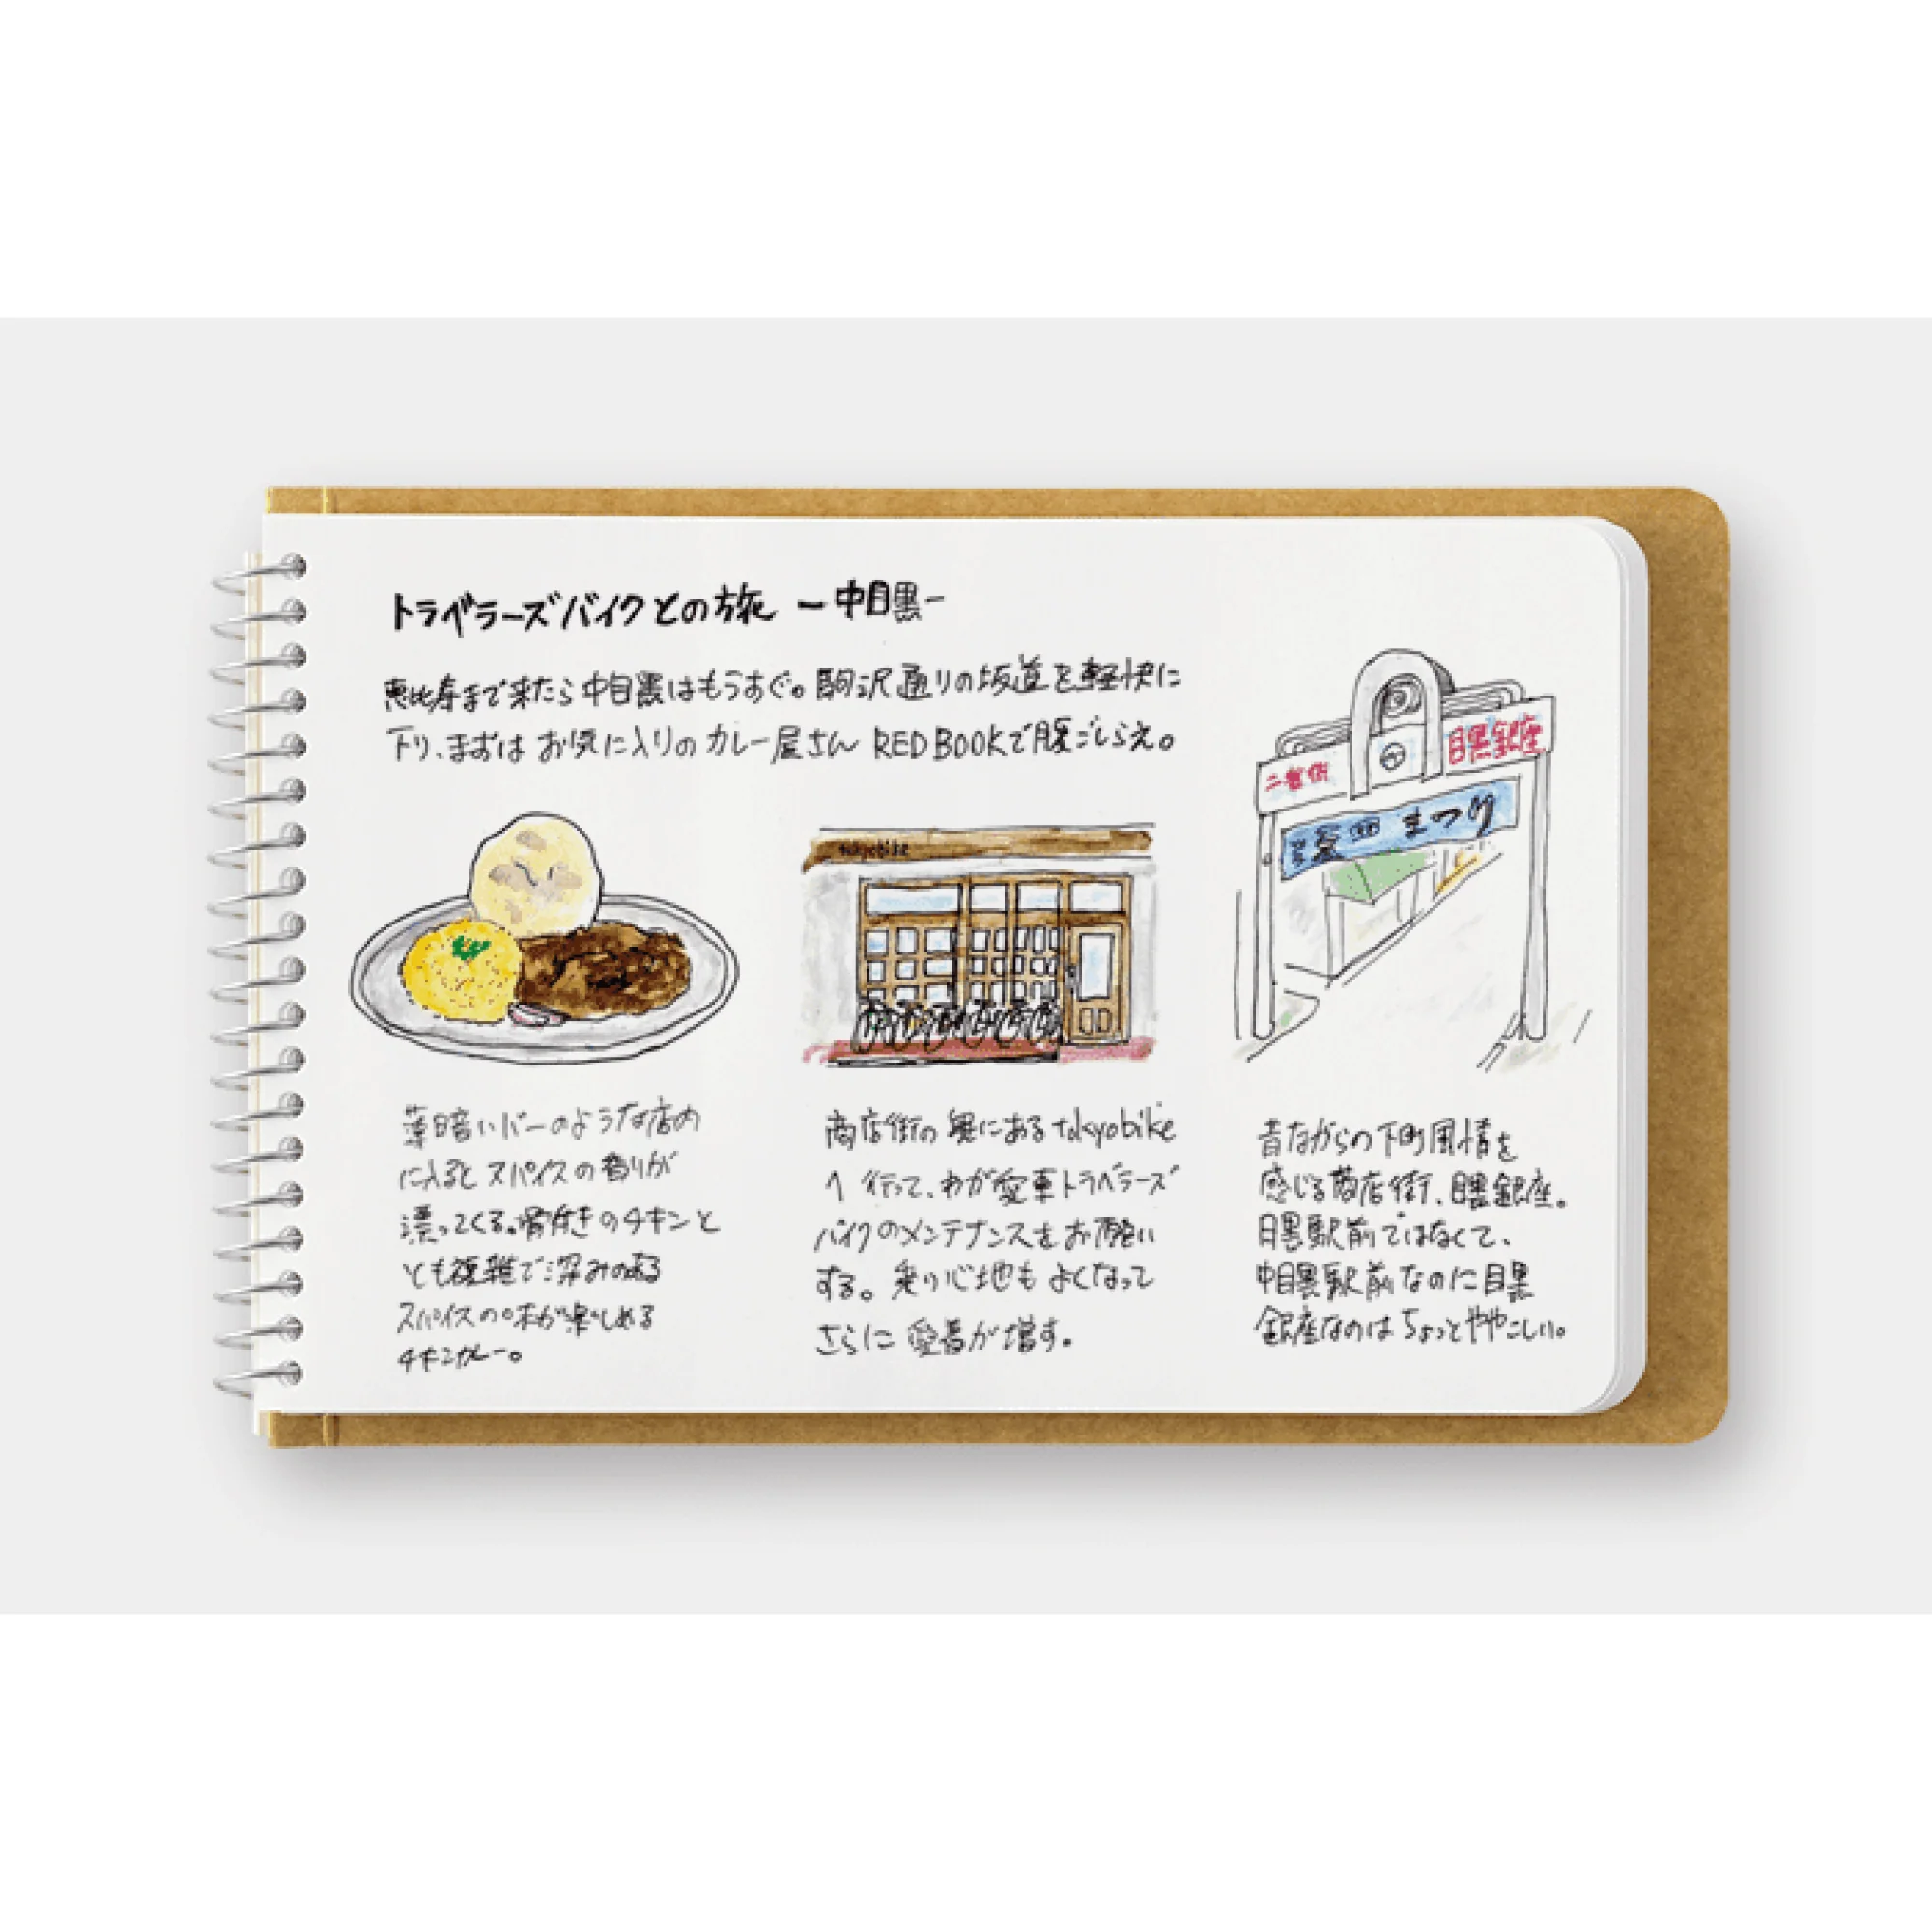 トラベラーズバイクとの旅 ー中目黒ー
恵比寿まで来たら中目黒はもうすぐ。駒沢通りの坂道を軽快に
下り、まずはお気に入りのカレー屋さん RED BOOKで腹ごしらえ。
二番街
目黒銀座
まつり
tokyobike
薄暗いバーのような店内
に入るとスパイスの香りが
漂ってくる。骨付きのチキンと
とも複雑で深みのある
スパイスの味が楽しめる
チキンカレー。
商店街の奥にあるtokyobike
へ行って、わが愛車トラベラーズ
バイクのメンテナンスをお願い
する。乗り心地もよくなって
さらに愛着が増す。
昔ながらの下町風情を
感じる商店街、目黒銀座。
目黒駅前ではなくて、
中目黒駅前なのに目黒
銀座なのはちょっとややこしい。